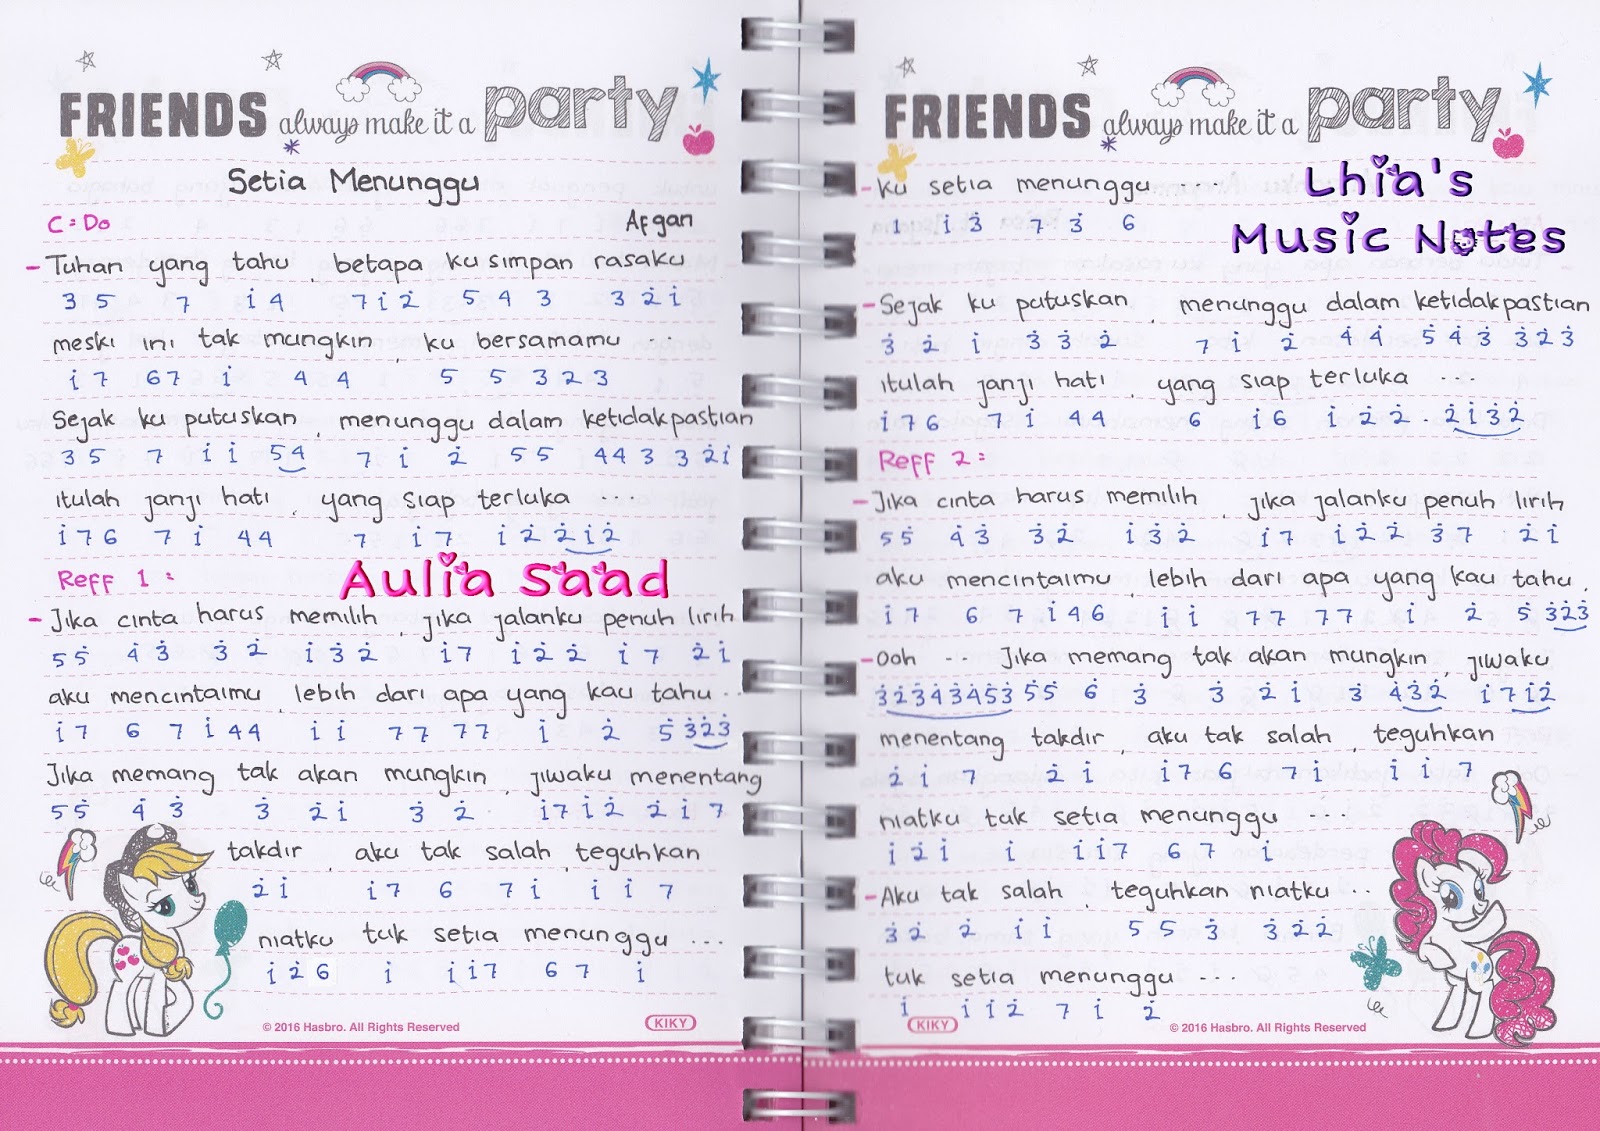 FRIENDS always make it a party
Setia Menunggu
C = Do Afgan
- Tuhan yang tahu, betapa ku simpan rasaku
3 5 7 i̇ 4 7 i̇ 2̇ 5 4 3 3 2̇ i̇
meski ini tak mungkin, ku bersamamu
i̇ 7 6 7 i̇ 4 4 5 5 3 2 3
Sejak ku putuskan, menunggu dalam ketidakpastian
3 5 7 i̇ i̇ 5̇ 4̇ 7 i̇ 2̇ 5 5 4 4 3 3 2̇ i̇
itulah janji hati, yang siap terluka ...
i̇ 7 6 7 i̇ 4 4 7 i̇ 7 i̇ 2̇ 2̇ i̇ 2̇
Reff 1 :
Aulia Saad
- Jika cinta harus memilih, jika jalanku penuh lirih
5 5̇ 4̇ 3̇ 3̇ 2̇ i̇ 3̇ 2̇ i̇ 7 i̇ 2̇ 2̇ i̇ 7 2̇ i̇
aku mencintaimu, lebih dari apa yang kau tahu ..
i̇ 7 6 7 i̇ 4 4 i̇ i̇ 7 7 7 7 i̇ 2̇ 5 3̇ 2̇ 3̇
Jika memang tak akan mungkin, jiwaku menentang
5 5̇ 4̇ 3̇ 3̇ 2̇ i̇ 3̇ 2̇ i̇ 7 i̇ 2̇ 2̇ i̇ 7
takdir, aku tak salah, teguhkan
2̇ i̇ i̇ 7 6 7 i̇ i̇ i̇ 7
niatku tuk setia menunggu ...
i̇ 2̇ 6 i̇ i̇ i̇ 7 6 7 i̇
© 2016 Hasbro. All Rights Reserved
KIKY
FRIENDS always make it a party
- Ku setia menunggu
1 i̇ 3̇ 7 3̇ 6
Lhia's
Music Notes
- Sejak ku putuskan, menunggu dalam ketidakpastian
3̇ 2̇ i̇ 3̇ 3̇ 2̇ 7 i̇ 2̇ 4̇ 4̇ 5̇ 4̇ 3̇ 3̇ 2̇ 3̇
itulah janji hati, yang siap terluka ...
i̇ 7 6 7 i̇ 4 4 6 i̇ 6 i̇ 2̇ 2̇ . 2̇ i̇ 3̇ 2̇
Reff 2 :
- Jika cinta harus memilih, jika jalanku penuh lirih
5 5̇ 4̇ 3̇ 3̇ 2̇ i̇ 3̇ 2̇ i̇ 7 i̇ 2̇ 2̇ 3̇ 7 2̇ i̇
aku mencintaimu, lebih dari apa yang kau tahu,
i̇ 7 6 7 i̇ 4 6 i̇ i̇ 7 7 7 7 i̇ 2̇ 5 3̇ 2̇ 3̇
- Ooh ... Jika memang tak akan mungkin, jiwaku
3̇ 2̇ 3̇ 4̇ 3̇ 4̇ 5̇ 3̇ 5̇ 5̇ 6̇ 3̇ 3̇ 2̇ i̇ 3̇ 4̇ 3̇ 2̇ i̇ 7 i̇ 2̇
menentang takdir, aku tak salah, teguhkan
2̇ i̇ 7 2̇ i̇ i̇ 7 6 7 i̇ i̇ i̇ 7
niatku tuk setia menunggu ...
i̇ 2̇ i̇ i̇ i̇ i̇ 7 6 7 i̇
- Aku tak salah, teguhkan niatku ..
3̇ 2̇ 2̇ i̇ i̇ 5 5 3̇ 3̇ 2̇ 2̇
tuk setia menunggu ...
i̇ i̇ i̇ 2̇ 7 i̇ 2̇
KIKY
© 2016 Hasbro. All Rights Reserved